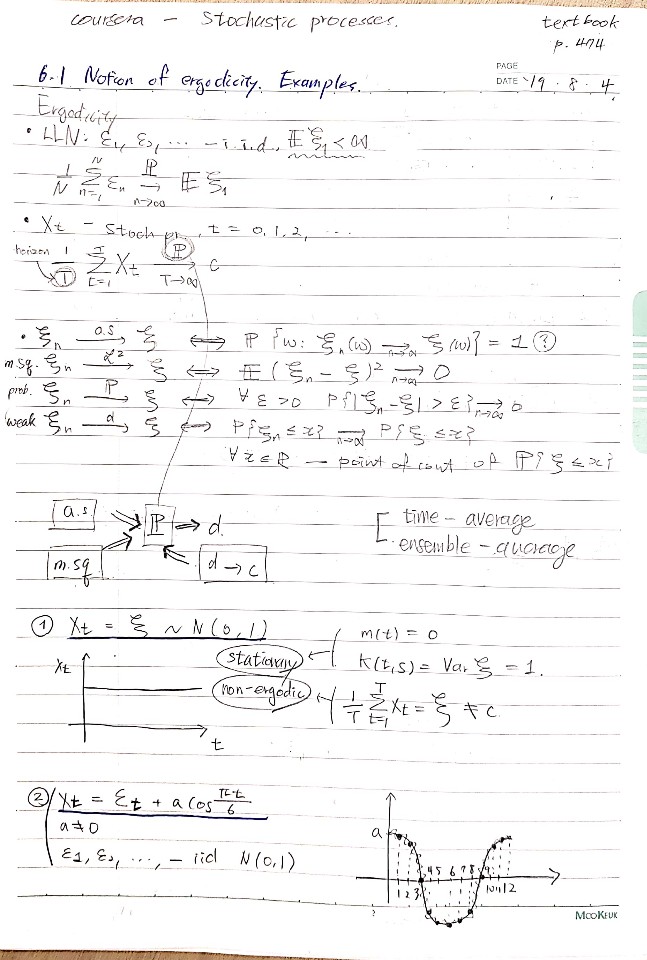 coursera - Stochastic processes.
textbook
p. 474
PAGE
DATE '19 . 8 . 4.
6.1 Notion of ergodicity. Examples.
Ergodicity
• LLN: ε₁, ε₂, ... - i.i.d, 𝔼 ξ₁ < ∞
1/N Σ_{n=1}^{N} ε_n →^{ℙ}_{n→∞} 𝔼 ξ₁
• Xt - Stoch pr, t = 0, 1, 2, ...
horizon 1/T Σ_{t=1}^{T} Xt →^{ℙ}_{T→∞} c
• ξ_n →^{a.s} ξ ⟺ ℙ {w: ξ_n(w) →_{n→∞} ξ(w)} = 1 ?
m.sq. ξ_n →^{L²} ξ ⟺ 𝔼 (ξ_n - ξ)² →_{n→∞} 0
prob. ξ_n →^{P} ξ ⟺ ∀ ε > 0 P{|ξ_n - ξ| > ε} →_{n→∞} 0
weak ξ_n →^{d} ξ ⟺ P{ξ_n ≤ x} →_{n→∞} P{ξ ≤ x}
∀ x ∈ ℝ - point of cont of ℙ{ξ ≤ x}
a.s ⇒ ℙ ⇒ d.
m.sq
d → c
[ time - average
ensemble - average
① Xt = ξ ~ N(0,1)
stationary
m(t) = 0
K(t,s) = Var ξ = 1.
non-ergodic
1/T Σ_{t=1}^{T} Xt = ξ ≠ c
Xt
t
② Xt = ε_t + a cos πt/6
a ≠ 0
ε1, ε₂, ..., - iid N(0,1)
a
1 2 3 4 5 6 7 8 9 10 11 12
MOOKEUK